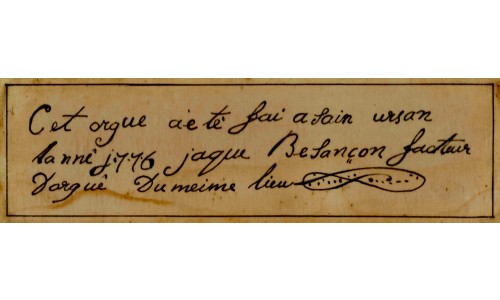 Cet orgue a été fai a sain ursan
lanné j776 jaque Besançon facteur
Dorgue Du meime lieu